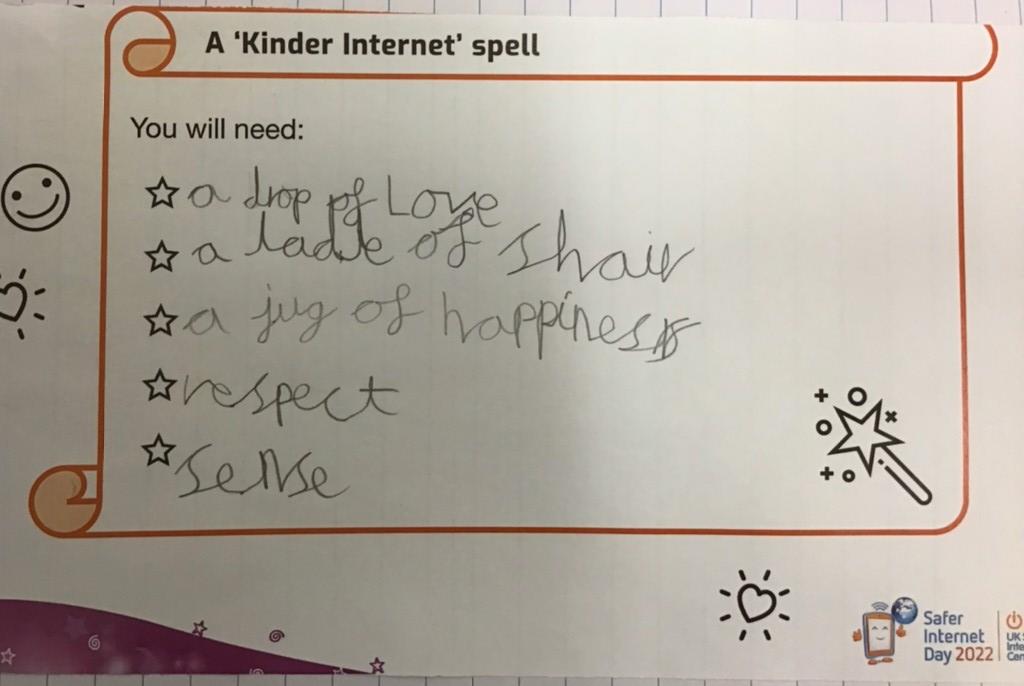 A ‘Kinder Internet’ spell
You will need:
a drop of Love
a ladle of shair
a jug of happiness
respect
sense
Safer
Internet
Day 2022
UK